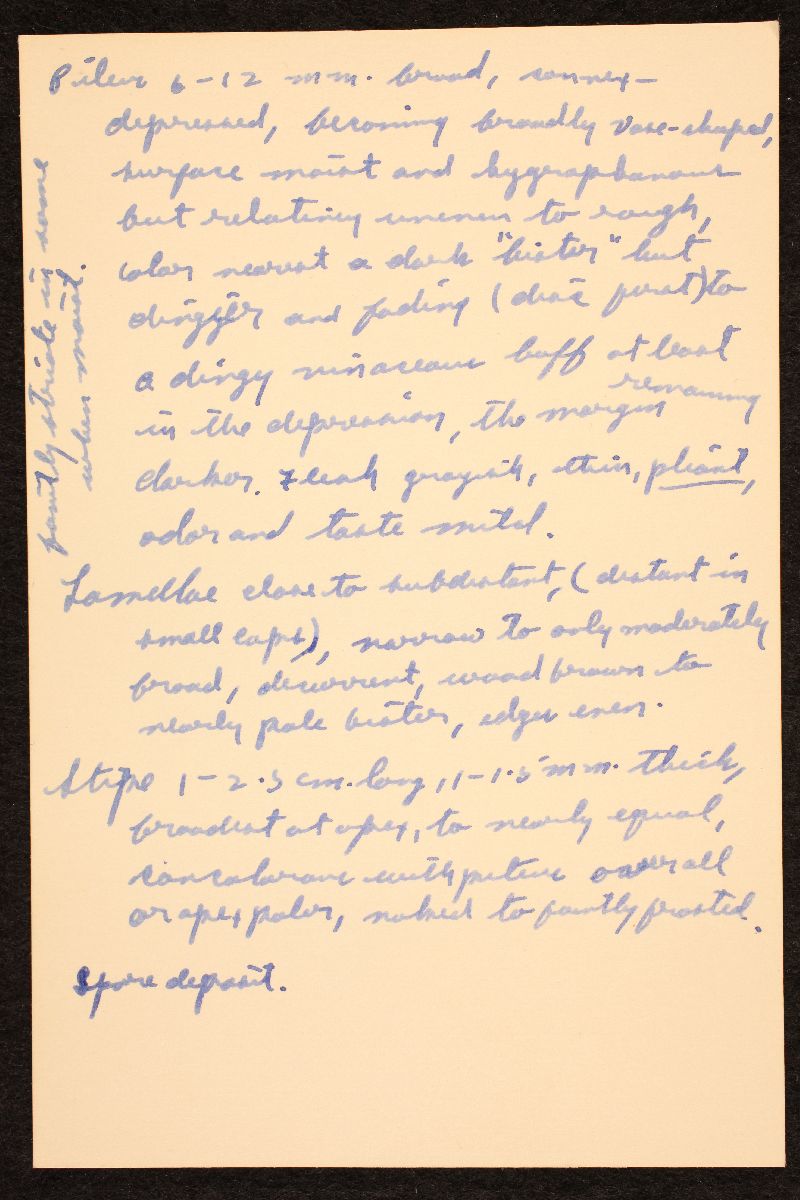 Pileus 6-12 mm. broad, convex-
depressed, becoming broadly vase-shaped,
surface moist and hygrophanous
but relatively uneven to rough,
color nearest a dark "bister" but
dingier and fading (disc first) to
a dingy vinaceous buff at least
in the depression, the margin remaining
darker. Flesh grayish, thin, pliant,
odor and taste mild.
Lamellae close to subdistant, (distant in
small caps), narrow to only moderately
broad, decurrent, wood brown to
nearly pale bister, edges even.
Stipe 1-2.5 cm. long, 1-1.5 mm. thick,
broadest at apex, to nearly equal,
concolorous with pileus overall
or apex paler, naked to faintly frosted.
Spore deposit.
faintly striate in some
when moist.